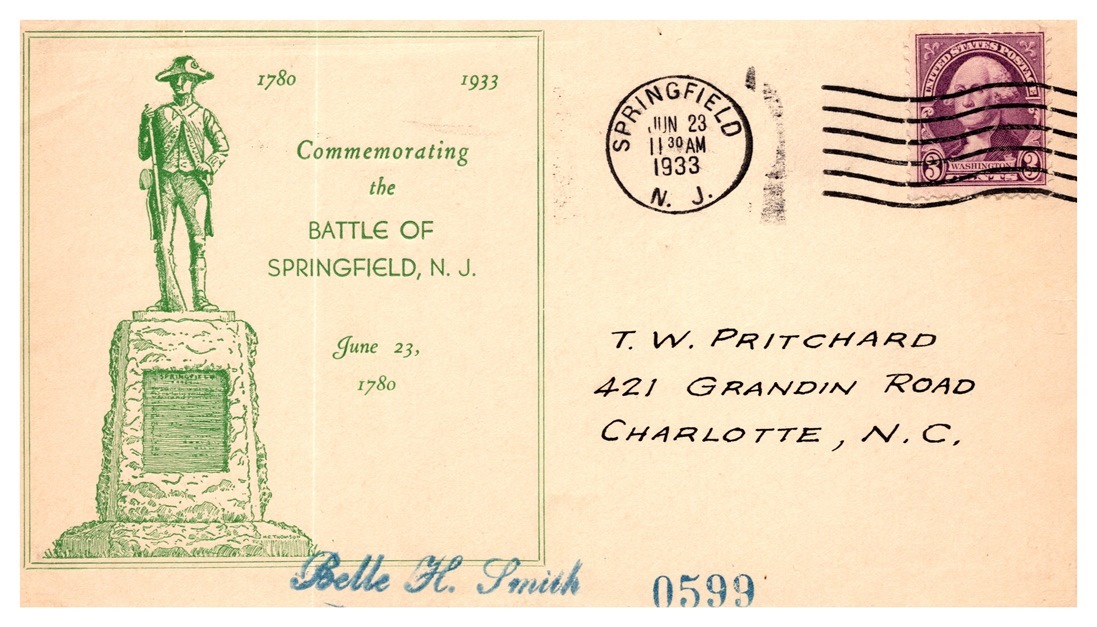 1780 1933
Commemorating
the
BATTLE OF
SPRINGFIELD, N. J.
June 23,
1780
SPRINGFIELD
H.C. THOMSON
SPRINGFIELD
JUN 23
11 30 AM
1933
N. J.
UNITED STATES POSTAGE
3 WASHINGTON 3
T. W. PRITCHARD
421 GRANDIN ROAD
CHARLOTTE, N. C.
Belle H. Smith
0599